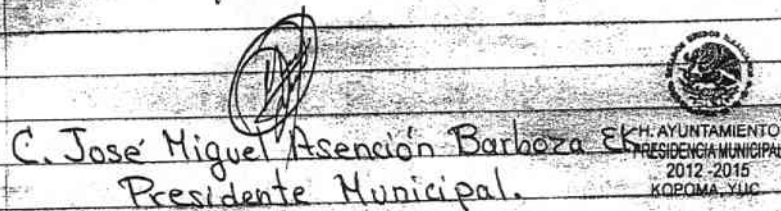 C. José Miguel Asención Barboza Ek
Presidente Municipal.
H. AYUNTAMIENTO
PRESIDENCIA MUNICIPAL
2012 - 2015
KOPOMA, YUC.